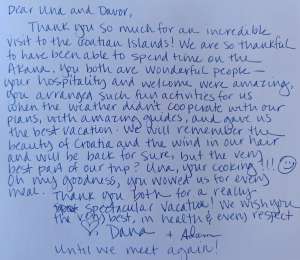 Dear Una and Davor,
Thank you so much for an incredible
visit to the Croatian Islands! We are so thankful
to have been able to spend time on the
Akana. You both are wonderful people –
your hospitality and welcome were amazing,
you arranged such fun activities for us
when the weather didn't cooperate with our
plans, with amazing guides, and gave us
the best vacation. We will remember the
beauty of Croatia and the wind in our hair
and will be back for sure, but the very
best part of our trip? Una, your cooking!!!
Oh my goodness, you wowed us for every
meal. Thank you both for a really
spectacular vacation! We wish you
the very best, in health & every respect
Dana + Adam
Until we meet again!